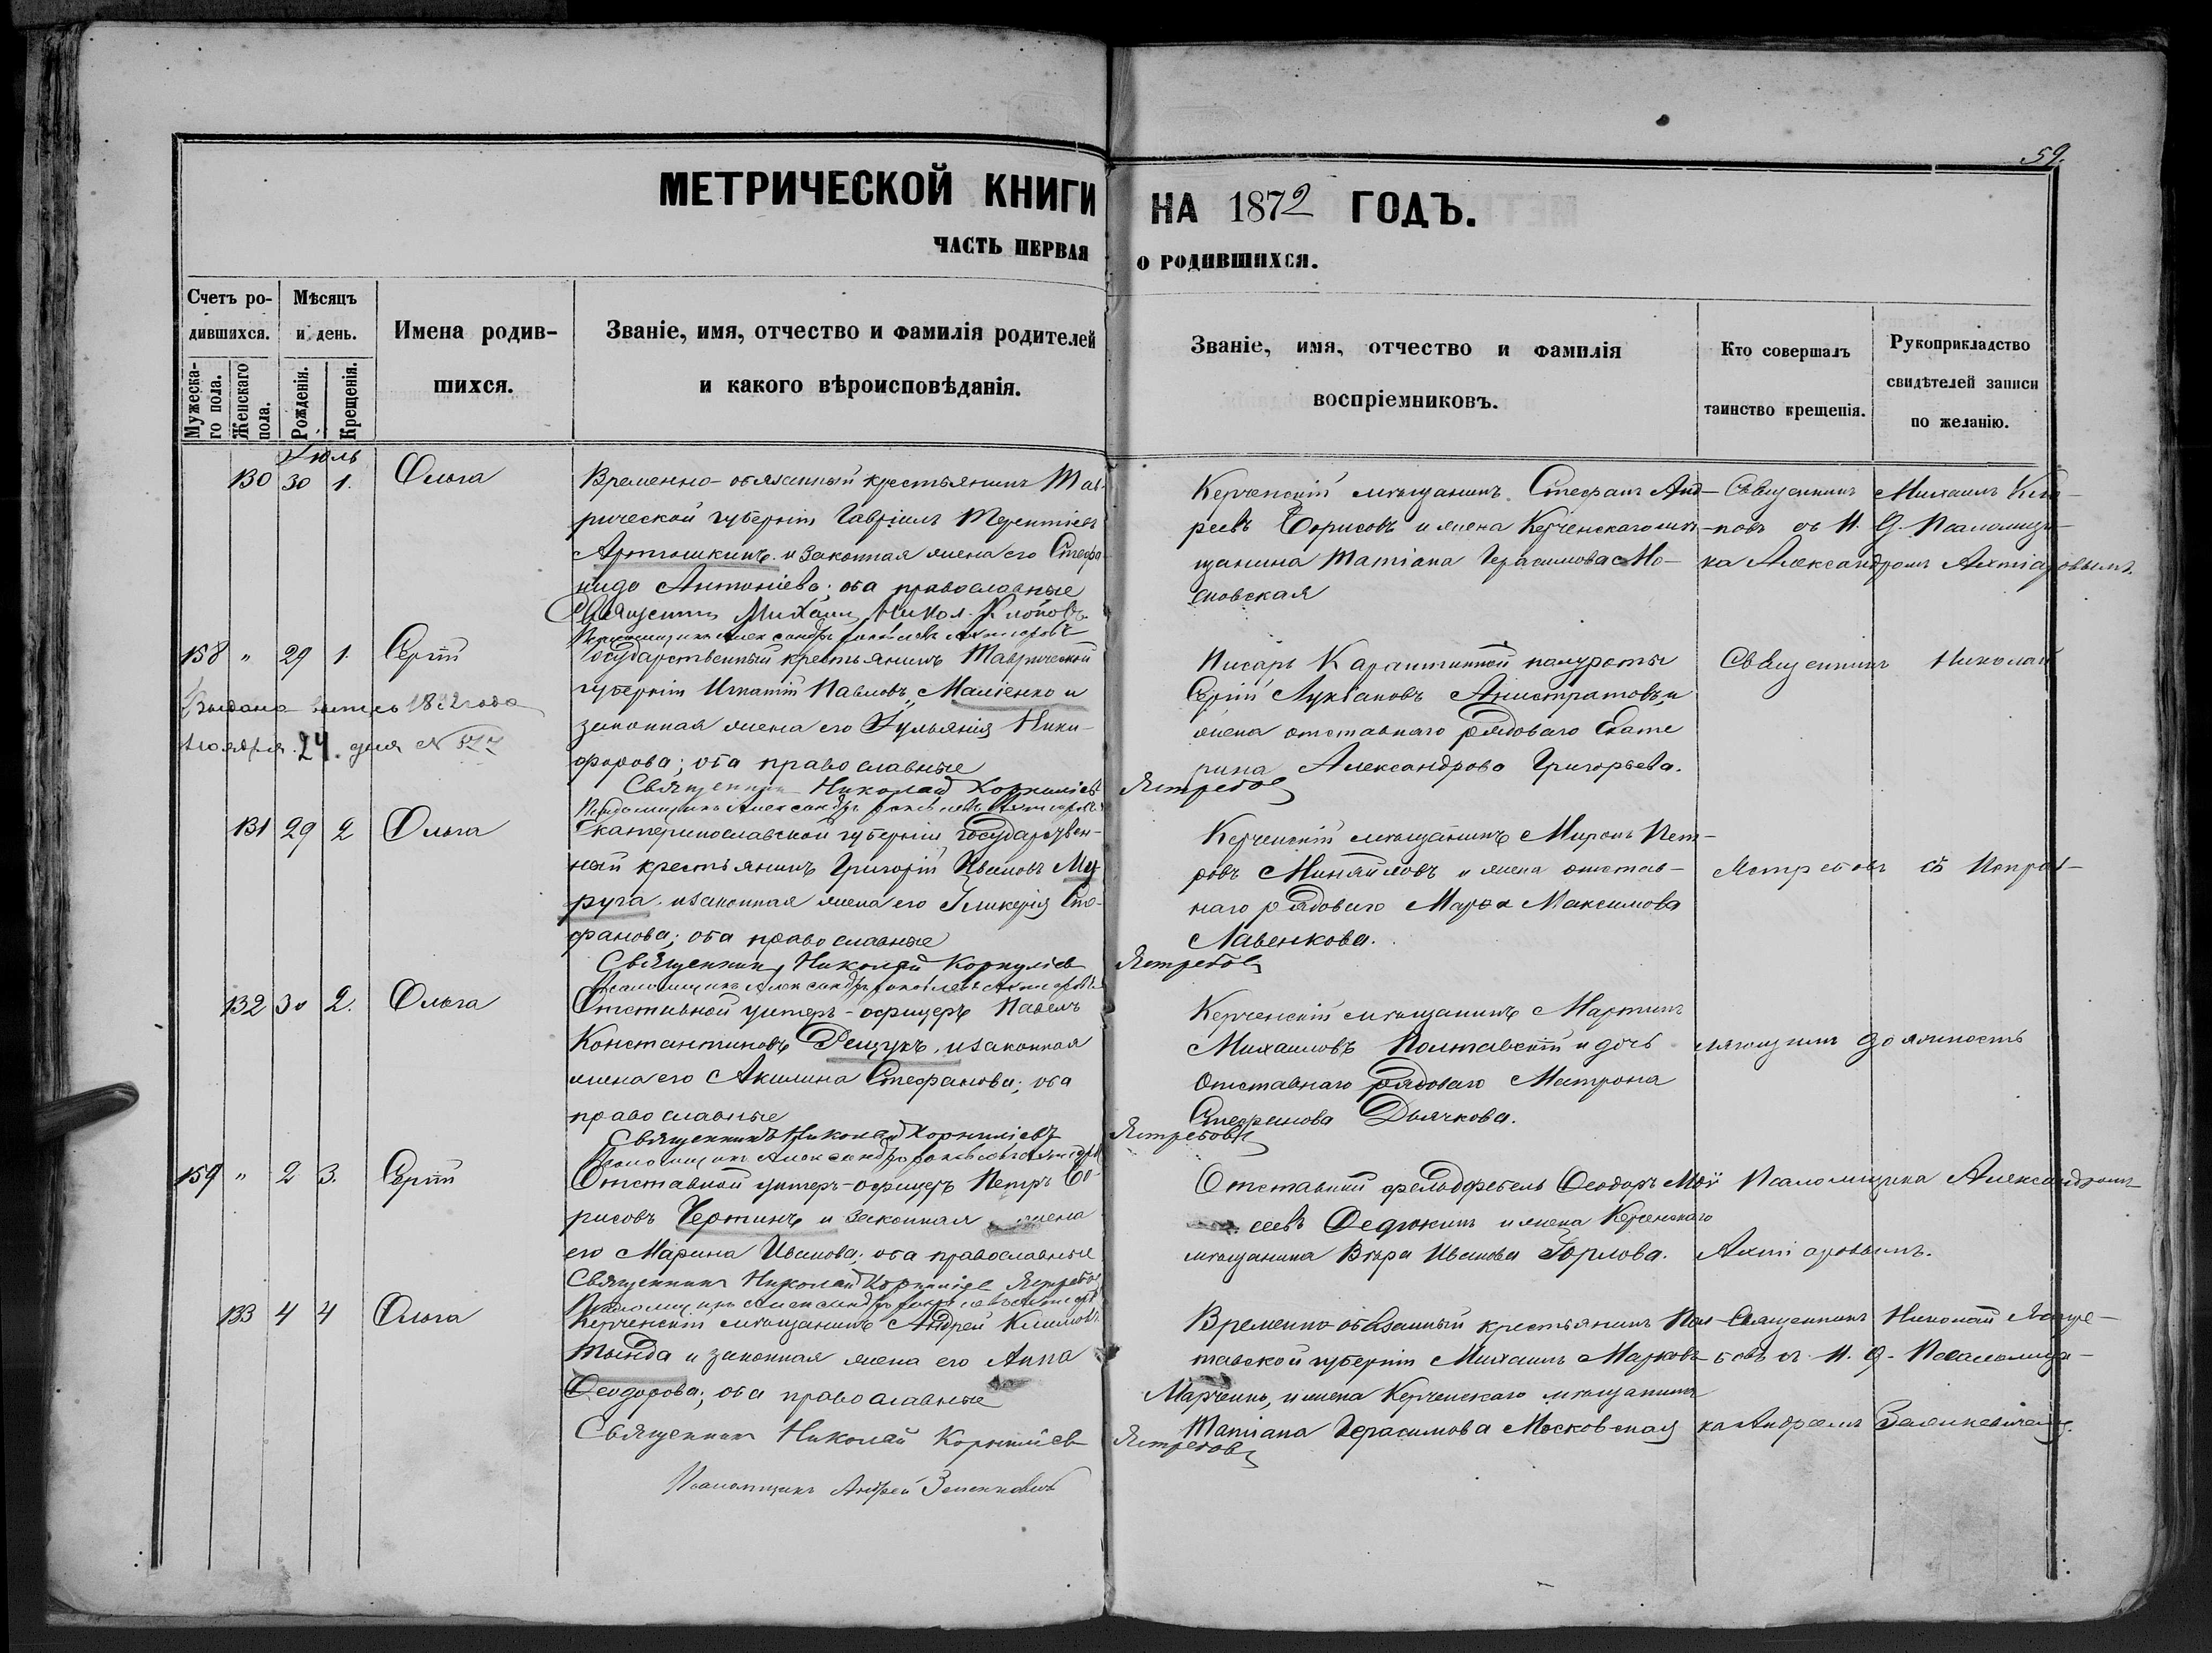 59.
МЕТРИЧЕСКОЙ КНИГИ НА 1872 ГОДЪ.
ЧАСТЬ ПЕРВАЯ О РОДИВШИХСЯ.
Счетъ родившихся.
Мужескаго пола.
Женскаго пола.
Мѣсяцъ и день.
Рожденія.
Крещенія.
Имена родившихся.
Званіе, имя, отчество и фамилія родителей
и какого вѣроисповѣданія.
Званіе, имя, отчество и фамилія
воспріемниковъ.
Кто совершалъ
таинство крещенія.
Рукоприкладство
свидѣтелей записи
по желанію.
Іюль
130 30 1. Ольга
Временно-обязанный крестьянинъ Тав-
рической губерніи Гавріилъ Терентіевъ
Артюшкинъ и законная жена его Стефа-
нида Антоніева; оба православные
Священникъ Михаилъ Никол. Клоповъ
Псаломщикъ Александръ Ахтіаровъ
Керченскій мѣщанинъ Стефанъ Анд-
реевъ Борисовъ и жена Керченскаго мѣ-
щанина Татіана Герасимова Мо-
сковская
Священникъ Михаилъ Кло-
повъ съ И. Д. Псаломщи-
ка Александромъ Ахтіаровымъ.
158 " 29 1. Сергій
Выдана выпись 1892 года
Ноября 24. дня № 577
Государственный крестьянинъ Таврической
губерніи Игнатій Павловъ Маліенко и
законная жена его Іульянія Ники-
форова; оба православные
Священникъ Николай Корниліевъ Ястребовъ
Псаломщикъ Александръ Ахтіаровъ
Писарь Карантинной полуроты
Сергій Лукіановъ Анистратовъ и
жена отставнаго рядоваго Екате
рина Александрова Григорьева.
Священникъ Николай
131 29 2 Ольга
Екатеринославской губерніи государствен-
ный крестьянинъ Григорій Ивановъ Му
руга и законная жена его Гликерія Сте-
фанова; оба православные
Священникъ Николай Корниліевъ Ястребовъ
Псаломщикъ Александръ Ахтіаровъ
Керченскій мѣщанинъ Миронъ Пет-
ровъ Минайловъ и жена отстав-
наго рядоваго Марѳа Максимова
Лавенкова.
Ястребовъ съ Исправ-
132 30 2. Ольга
Отставной унтеръ-офицеръ Павелъ
Константиновъ Рещукъ и законная
жена его Акилина Стефанова; оба
православные
Священникъ Николай Корниліевъ Ястребовъ
Псаломщикъ Александръ Ахтіаровъ
Керченскій мѣщанинъ Мартинъ
Михаиловъ Полтавскій и дочь
Отставнаго рядоваго Матрона
Стефанова Дьячкова.
ляющимъ должность
159 " 2 3. Сергій
Отставной унтеръ-офицеръ Петръ Бо-
рисовъ Чертинъ и законная жена
его Марина Иванова; оба православные
Священникъ Николай Корниліевъ Ястребовъ
Псаломщикъ Александръ Ахтіаровъ
Отставный фельдфебель Ѳеодоръ Мои
сеевъ Ѳедюкинъ и жена Керченскаго
мѣщанина Вѣра Иванова Горлова.
Псаломщика Александромъ
Ахтіаровымъ.
133 4 4 Ольга
Керченскій мѣщанинъ Андрей Климовъ
Тында и законная жена его Анна
Ѳеодорова; оба православные
Священникъ Николай Корниліевъ Ястребовъ
Псаломщикъ Андрей Зеленкевичъ
Временно-обязанный крестьянинъ Пол-
тавской губерніи Михаилъ Марковъ
Марченко, и жена Керченскаго мѣщанина
Татіана Герасимова Московская
Священникъ Николай Ястре-
бовъ съ И. Д. Псаломщи-
ка Андреемъ Зеленкевичемъ.